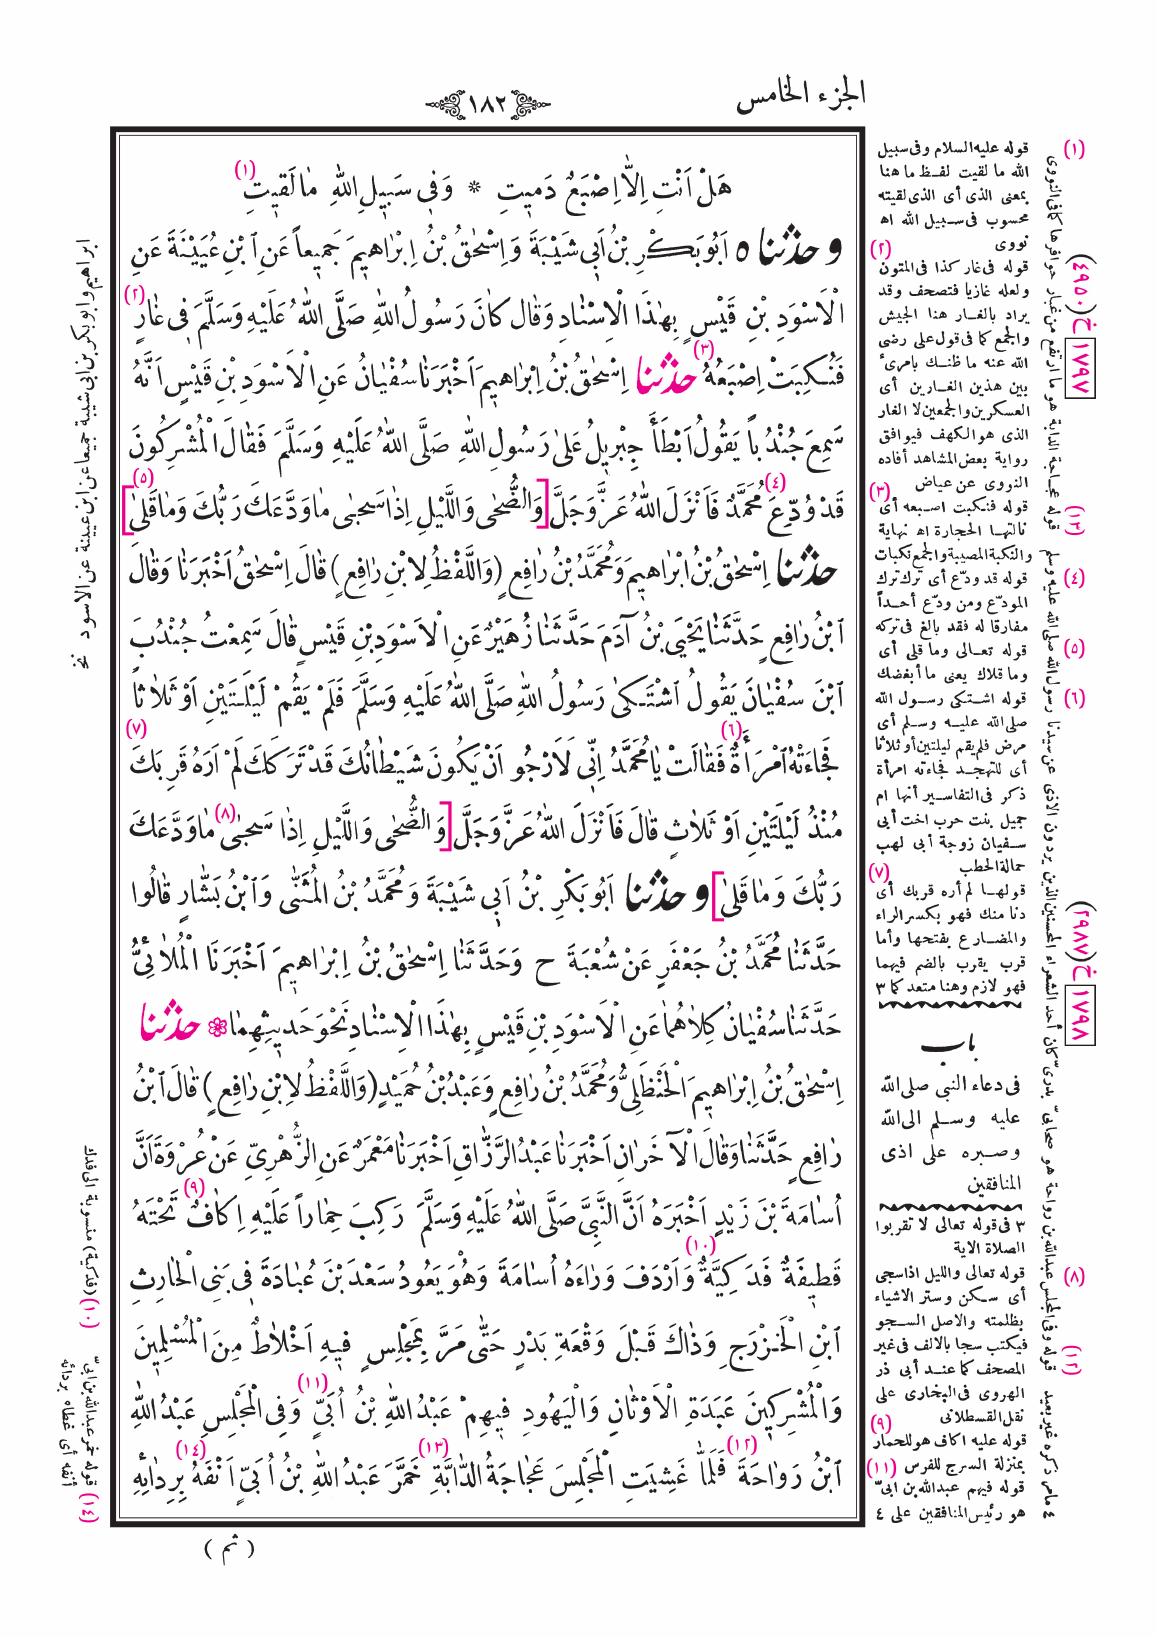 الجزء الخامس
١٨٢
هَلْ اَنْتِ اِلاَّ اِصْبَعٌ دَمِيتِ * وَفِى سَبِيلِ اللهِ مَا لَقِيتِ (١)
و حدثنا ٥ اَبُو بَكْرِ بْنُ اَبِى شَيْبَةَ وَ اِسْحٰقُ بْنُ اِبْرٰاهِيمَ جَمِيعاً عَنِ ابْنِ عُيَيْنَةَ عَنِ
الْاَسْوَدِ بْنِ قَيْسٍ بِهٰذَا الْاِسْنٰادِ وَقٰالَ كٰانَ رَسُولُ اللهِ صَلَّى اللهُ عَلَيْهِ وَسَلَّمَ فِى غٰارٍ (٢)
فَنُكِبَتْ اِصْبَعُهُ (٣) حدثنا اِسْحٰقُ بْنُ اِبْرٰاهِيمَ اَخْبَرَنٰا سُفْيٰانُ عَنِ الْاَسْوَدِ بْنِ قَيْسٍ اَنَّهُ
سَمِعَ جُنْدُباً يَقُولُ اَبْطَأَ جِبْرِيلُ عَلىٰ رَسُولِ اللهِ صَلَّى اللهُ عَلَيْهِ وَسَلَّمَ فَقٰالَ الْمُشْرِكُونَ
قَدْ وُدِّعَ (٤) مُحَمَّدٌ فَاَنْزَلَ اللهُ عَزَّ وَجَلَّ [وَالضُّحٰى وَاللَّيْلِ اِذٰا سَجٰى مٰا وَدَّعَكَ رَبُّكَ وَمٰا قَلىٰ (٥)]
حدثنا اِسْحٰقُ بْنُ اِبْرٰاهِيمَ وَمُحَمَّدُ بْنُ رٰافِعٍ (وَاللَّفْظُ لِابْنِ رٰافِعٍ) قٰالَ اِسْحٰقُ اَخْبَرَنٰا وَقٰالَ
ابْنُ رٰافِعٍ حَدَّثَنٰا يَحْيَى بْنُ آدَمَ حَدَّثَنٰا زُهَيْرٌ عَنِ الْاَسْوَدِ بْنِ قَيْسٍ قٰالَ سَمِعْتُ جُنْدُبَ
ابْنَ سُفْيٰانَ يَقُولُ اشْتَكىٰ رَسُولُ اللهِ صَلَّى اللهُ عَلَيْهِ وَسَلَّمَ فَلَمْ يَقُمْ لَيْلَتَيْنِ اَوْ ثَلاٰثاً
فَجٰاءَتْهُ امْرَأَةٌ (٦) فَقٰالَتْ يٰا مُحَمَّدُ اِنِّى لَاَرْجُو اَنْ يَكُونَ شَيْطٰانُكَ قَدْ تَرَكَكَ لَمْ اَرَهُ قَرِبَكَ (٧)
مُنْذُ لَيْلَتَيْنِ اَوْ ثَلاٰثٍ قٰالَ فَاَنْزَلَ اللهُ عَزَّ وَجَلَّ [وَالضُّحٰى وَاللَّيْلِ اِذٰا سَجٰى (٨) مٰا وَدَّعَكَ
رَبُّكَ وَمٰا قَلىٰ] و حدثنا اَبُو بَكْرِ بْنُ اَبِى شَيْبَةَ وَمُحَمَّدُ بْنُ الْمُثَنّٰى وَابْنُ بَشّٰارٍ قٰالُوا
حَدَّثَنٰا مُحَمَّدُ بْنُ جَعْفَرٍ عَنْ شُعْبَةَ ح وَحَدَّثَنٰا اِسْحٰقُ بْنُ اِبْرٰاهِيمَ اَخْبَرَنَا الْمُلاٰئِىُّ
حَدَّثَنٰا سُفْيٰانُ كِلاٰهُمٰا عَنِ الْاَسْوَدِ بْنِ قَيْسٍ بِهٰذَا الْاِسْنٰادِ نَحْوَ حَدِيثِهِمٰا ❁ حدثنا
اِسْحٰقُ بْنُ اِبْرٰاهِيمَ الْحَنْظَلِىُّ وَمُحَمَّدُ بْنُ رٰافِعٍ وَعَبْدُ بْنُ حُمَيْدٍ (وَاللَّفْظُ لِابْنِ رٰافِعٍ) قٰالَ ابْنُ
رٰافِعٍ حَدَّثَنٰا وَقٰالَ الْآخَرٰانِ اَخْبَرَنٰا عَبْدُ الرَّزّٰاقِ اَخْبَرَنٰا مَعْمَرٌ عَنِ الزُّهْرِىِّ عَنْ عُرْوَةَ اَنَّ
اُسٰامَةَ بْنَ زَيْدٍ اَخْبَرَهُ اَنَّ النَّبِىَّ صَلَّى اللهُ عَلَيْهِ وَسَلَّمَ رَكِبَ حِمٰاراً عَلَيْهِ اِكٰافٌ (٩) تَحْتَهُ
قَطِيفَةٌ فَدَكِيَّةٌ (١٠) وَاَرْدَفَ وَرٰاءَهُ اُسٰامَةَ وَهُوَ يَعُودُ سَعْدَ بْنَ عُبٰادَةَ فِى بَنِى الْحٰارِثِ
ابْنِ الْخَزْرَجِ وَذٰاكَ قَبْلَ وَقْعَةِ بَدْرٍ حَتّٰى مَرَّ بِمَجْلِسٍ فِيهِ اَخْلاٰطٌ مِنَ الْمُسْلِمِينَ
وَالْمُشْرِكِينَ عَبَدَةِ الْاَوْثٰانِ وَالْيَهُودِ فِيهِمْ عَبْدُ اللهِ بْنُ اُبَىٍّ (١١) وَفِى الْمَجْلِسِ عَبْدُ اللهِ
ابْنُ رَوٰاحَةَ (١٢) فَلَمّٰا غَشِيَتِ الْمَجْلِسَ عَجٰاجَةُ الدّٰابَّةِ (١٣) خَمَّرَ عَبْدُ اللهِ بْنُ اُبَىٍّ اَنْفَهُ (١٤) بِرِدٰائِهِ
( ثم )
(١) قوله عليه السلام وفى سبيل
الله ما لقيت لفظ ما هنا
بمعنى الذى أى الذى لقيته
محسوب فى سبيل الله اه
نووى
(٢)
قوله فى غار كذا فى المتون
ولعله غازيا فتصحف وقد
يراد بالغار هنا الجيش
والجمع كما فى قول على رضى
الله عنه ما ظنك بامرئ
بين هذين الغارين أى
العسكرين والجمعين لا الغار
الذى هو الكهف فيوافق
رواية بعض المشاهد أفاده
النووى عن عياض
(٣)
قوله فنكبت اصبعه أى
نالتها الحجارة اه نهاية
والنكبة المصيبة والجمع نكبات
(٤) قوله قد ودّع أى ترك ترك
المودّع ومن ودّع أحداً
مفارقا له فقد بالغ فى تركه
(٥) قوله تعالى وما قلى أى
وما قلاك يعنى ما أبغضك
(٦) قوله اشتكى رسول الله
صلى الله عليه وسلم أى
مرض فلم يقم ليلتين أو ثلاثا
أى للتهجد فجاءته امرأة
ذكر فى التفاسير أنها ام
جميل بنت حرب اخت أبى
سفيان زوجة أبى لهب
حمالة الحطب
(٧)
قولها لم أره قربك أى
دنا منك فهو بكسر الراء
والمضارع بفتحها وأما
قرب يقرب بالضم فيهما
فهو لازم وهنا متعد كما ٣
باب
فى دعاء النبى صلى الله
عليه وسلم الى الله
وصبره على اذى
المنافقين
٣ فى قوله تعالى لا تقربوا
الصلاة الاية
(٨) قوله تعالى والليل اذا سجى
أى سكن وستر الاشياء
بظلمته والاصل السجو
فيكتب سجا بالالف فى غير
المصحف كما عند أبى ذر
الهروى فى البخارى على
نقل القسطلانى
(٩)
قوله عليه اكاف هو للحمار
بمنزلة السرج للفرس
(١١)
قوله فيهم عبدالله بن ابىّ
هو رئيس المنافقين على ٤
٤ ما مر ذكره غير بعيد
(١٢) قوله وفى المجلس عبدالله بن رواحة هو صحابىّ بدرىّ كان أحد الشعراء المحسنين الذين يردون الاذى عن سيدنا رسول الله صلى الله عليه وسلم
(١٣) قوله عجاجة الدابة هو ما ارتفع من غبار حوافرها كما فى النووى
(٤٩٥٠) خ ١٧٩٧
(٢٩٨٧) خ ١٧٩٨
ابراهيم وابوبكر بن ابى شيبة جميعا عن ابن عيينة عن الاسود نخ
(١٠) (فدكية) منسوبة الى فدك
(١٤) قوله خمر عبدالله بن ابىّ
أنفه أى غطاه بردائه